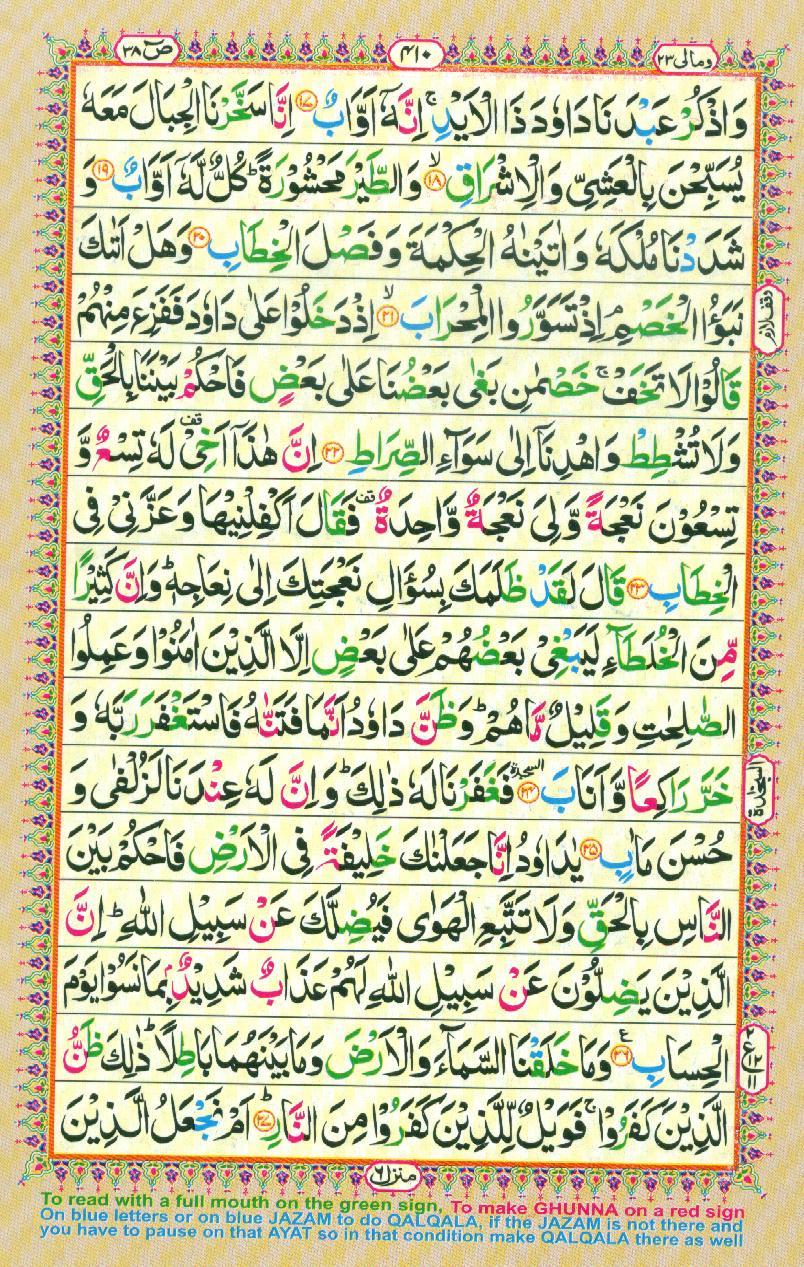 ومالی ٢٣
٤١٠
صٓ ٣٨
وَاذْكُرْ عَبْدَنَا دَاوٗدَ ذَا الْاَيْدِ ۚ اِنَّهٗۤ اَوَّابٌ ﴿١٧﴾ اِنَّا سَخَّرْنَا الْجِبَالَ مَعَهٗ
يُسَبِّحْنَ بِالْعَشِيِّ وَالْاِشْرَاقِ ۙ﴿١٨﴾ وَالطَّيْرَ مَحْشُوْرَةً ؕ كُلٌّ لَّهٗۤ اَوَّابٌ ﴿١٩﴾ وَ
شَدَدْنَا مُلْكَهٗ وَاٰتَيْنٰهُ الْحِكْمَةَ وَفَصْلَ الْخِطَابِ ﴿٢٠﴾ وَهَلْ اَتٰىكَ
نَبَؤُا الْخَصْمِ ۘ اِذْ تَسَوَّرُوا الْمِحْرَابَ ۙ﴿٢١﴾ اِذْ دَخَلُوْا عَلٰى دَاوٗدَ فَفَزِعَ مِنْهُمْ
وقف لازم
قَالُوْا لَا تَخَفْ ۚ خَصْمٰنِ بَغٰى بَعْضُنَا عَلٰى بَعْضٍ فَاحْكُمْ بَيْنَنَا بِالْحَقِّ
وَلَا تُشْطِطْ وَاهْدِنَاۤ اِلٰى سَوَآءِ الصِّرَاطِ ﴿٢٢﴾ اِنَّ هٰذَاۤ اَخِيْ ۫ لَهٗ تِسْعٌ وَّ
تِسْعُوْنَ نَعْجَةً وَّلِيَ نَعْجَةٌ وَّاحِدَةٌ ۫ فَقَالَ اَكْفِلْنِيْهَا وَعَزَّنِيْ فِي
الْخِطَابِ ﴿٢٣﴾ قَالَ لَقَدْ ظَلَمَكَ بِسُؤَالِ نَعْجَتِكَ اِلٰى نِعَاجِهٖ ؕ وَاِنَّ كَثِيْرًا
مِّنَ الْخُلَطَآءِ لَيَبْغِيْ بَعْضُهُمْ عَلٰى بَعْضٍ اِلَّا الَّذِيْنَ اٰمَنُوْا وَعَمِلُوا
الصّٰلِحٰتِ وَقَلِيْلٌ مَّا هُمْ ؕ وَظَنَّ دَاوٗدُ اَنَّمَا فَتَنّٰهُ فَاسْتَغْفَرَ رَبَّهٗ وَ
خَرَّ رَاكِعًا وَّاَنَابَ ﴿٢٤﴾ السجدة فَغَفَرْنَا لَهٗ ذٰلِكَ ؕ وَاِنَّ لَهٗ عِنْدَنَا لَزُلْفٰى وَ
السجدة
حُسْنَ مَاٰبٍ ﴿٢٥﴾ يٰدَاوٗدُ اِنَّا جَعَلْنٰكَ خَلِيْفَةً فِي الْاَرْضِ فَاحْكُمْ بَيْنَ
النَّاسِ بِالْحَقِّ وَلَا تَتَّبِعِ الْهَوٰى فَيُضِلَّكَ عَنْ سَبِيْلِ اللّٰهِ ؕ اِنَّ
الَّذِيْنَ يَضِلُّوْنَ عَنْ سَبِيْلِ اللّٰهِ لَهُمْ عَذَابٌ شَدِيْدٌۢ بِمَا نَسُوْا يَوْمَ
الْحِسَابِ ﴿٢٦﴾ ع وَمَا خَلَقْنَا السَّمَآءَ وَالْاَرْضَ وَمَا بَيْنَهُمَا بَاطِلًا ؕ ذٰلِكَ ظَنُّ
٢ ع ١٢ ١١
الَّذِيْنَ كَفَرُوْا ۚ فَوَيْلٌ لِّلَّذِيْنَ كَفَرُوْا مِنَ النَّارِ ؕ﴿٢٧﴾ اَمْ نَجْعَلُ الَّذِيْنَ
منزل ٦
To read with a full mouth on the green sign, To make GHUNNA on a red sign
On blue letters or on blue JAZAM to do QALQALA, if the JAZAM is not there and
you have to pause on that AYAT so in that condition make QALQALA there as well